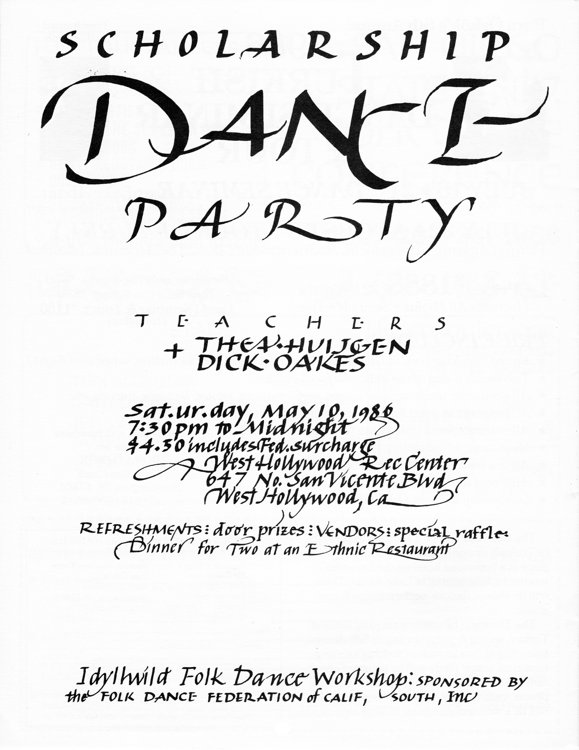 SCHOLARSHIP
DANCE
PARTY
TEACHERS
+ THEA·HUIJGEN
DICK·OAKES
Sat.ur.day, May 10, 1986
7:30 pm to Midnight
$4.30 includes Fed. surcharge
West Hollywood Rec Center
647 No. San Vicente Blvd
West Hollywood, Ca
REFRESHMENTS: door prizes: VENDORS: special raffle:
Dinner for Two at an Ethnic Restaurant
Idyllwild Folk Dance Workshop: SPONSORED BY
the FOLK DANCE FEDERATION of CALIF, SOUTH, Inc